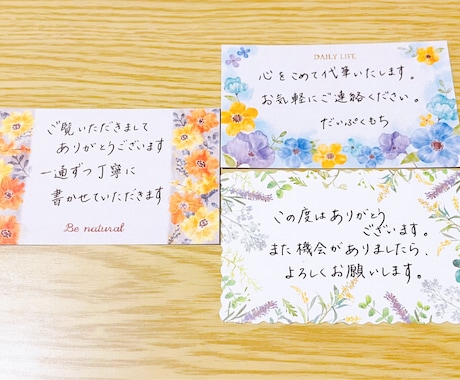 ご覧いただきまして
ありがとうございます
一通ずつ丁寧に
書かせていただきます
Be natural
DAILY LIFE
心をこめて代筆いたします。
お気軽にご連絡ください。
だいふくもち
この度はありがとう
ございます。
また機会がありましたら、
よろしくお願いします。